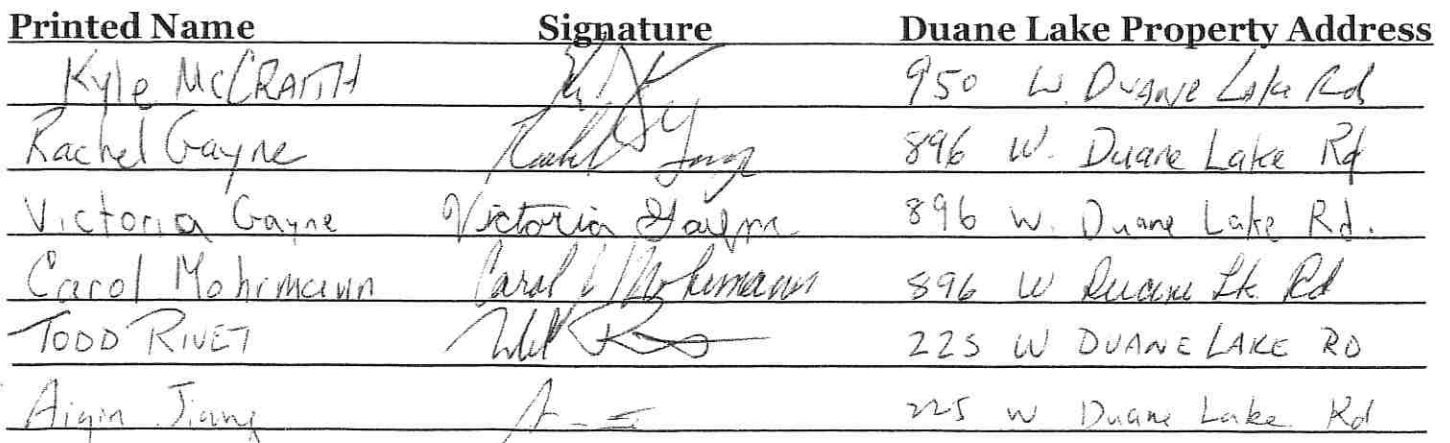 Printed Name Signature Duane Lake Property Address
Kyle McCRAITH 950 W. DUANE Lake Rd
Rachel Gayne 896 W. Duane Lake Rd
Victoria Gayne Victoria Gayne 896 W. Duane Lake Rd.
Carol Mohrmann Carol L Mohrmann 896 W Duane Lk Rd
TODD RIVET 225 W DUANE LAKE RD
Aiqin Jiang 225 W Duane Lake Rd